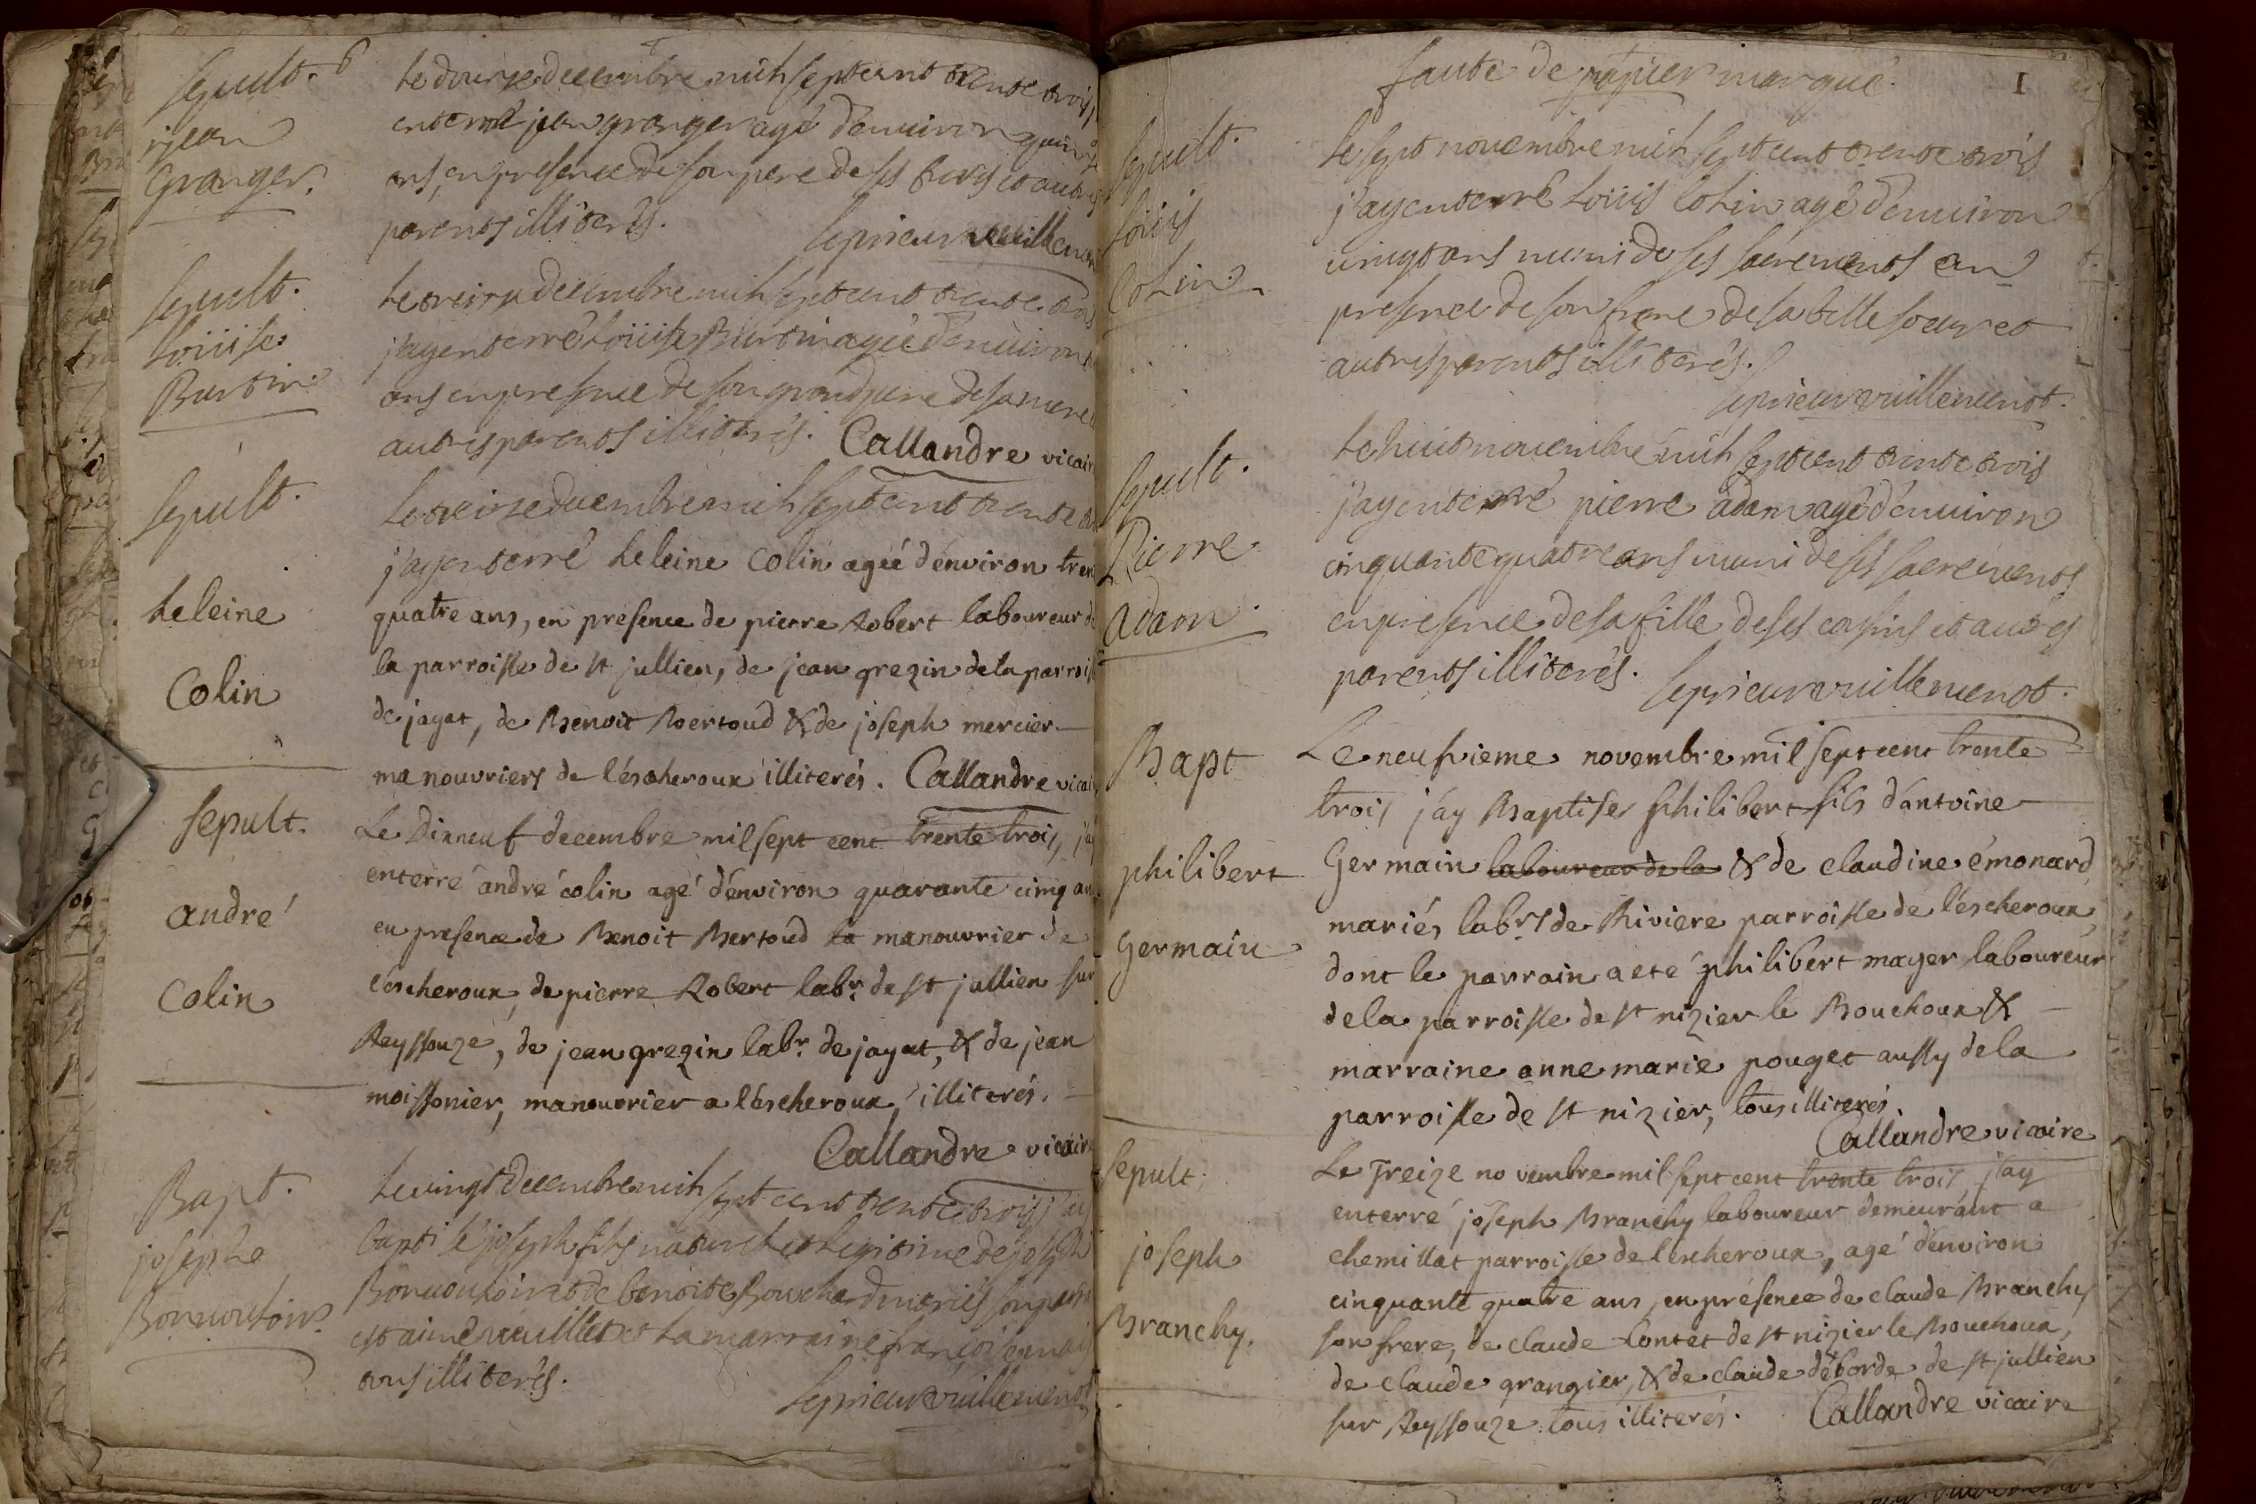 sepult. 6
jean
Granger.
Le douze decembre mil sept cent trente trois j'
enterré jean granger agé d'environ quinze
ans, en presence de son pere de ses freres et autres
parents illiterés.
le prieur vuillemenot
sepult.
Loüise
Burtin
Le treize decembre mil sept cent trente trois
j'ay enterré Loüise Burtin agée d'environ
ans en presence de son grand pere de sa mere
autres parents illiterés. Callandre vicaire
sepult.
heleine
Colin
Le treize decembre mil sept cent trente
j'ay enterré heleine Colin agée d'environ tren
quatre ans, en presence de pierre Robert laboureur de
la parroisse de st jullien, de jean grezin de la parroisse
de jayat, de Benoit Bertoud & de joseph mercier
manouvriers de l'éscheroux illiterés. Callandre vicai
sepult.
andré
Colin
Le Dixneuf decembre mil sept cent trente trois, j'ay
enterré andré colin agé d'environ quarante cinq ans
en presence de Benoit Bertoud la manouvrier de
l'éscheroux, de pierre Robert labr. de st jullien sur
Reyssouze, de jean grezin labr. de jayat, & de jean
moissonier, manouvrier a l'éscheroux, illiterés.
Callandre vicaire
Bapt.
joseph
Bonvouloir
Le vingt decembre mil sept cent trente trois j'ai
baptisé joseph fils naturel et legitime de joseph
Bonvouloir et de benoite Bouchard mariés son parrain
est aimé vuillet et la marraine françoise
tous illiterés.
le prieur vuillemenot
faute de papier marqué.
I
sepult.
Loüis
Colin
Le sept novembre mil sept cent trente trois
j'ay enterré Loüis Colin agé d'environ
vingt ans muni de ses sacrements en
presence de son frere de sa belle soeur et
autres parents illiterés.
le prieur vuillemenot.
sepult.
Pierre
adam
Le huit novembre mil sept cent trente trois
j'ay enterré pierre adam agé d'environ
cinquante quatre ans muni de ses sacrements
en presence de sa fille de ses cousins et autres
parents illiterés.
le prieur vuillemenot.
Bapt
philibert
Germain
Le neufvieme novembre mil sept cent trente
trois j'ay Baptisé philibert fils d'antoine
Germain laboureur de la & de claudine émonard
mariés labrs de Riviere parroisse de l'éscheroux,
dont le parrain a eté philibert mayer laboureur
de la parroisse de st nizier le Bouchoux &
marraine anne marie pouget aussy de la
parroisse de st nizier, tous illiterés
Callandre vicaire
sepult.
joseph
Branchy.
Le Treize novembre mil sept cent trente trois j'ay
enterré joseph Branchy laboureur demeurant a
chemillat parroisse de l'escheroux, agé d'environ
cinquante quatre ans, en présence de claude Branchy
son frere, de claude Contet de st nizier le Bouchoux,
de claude grangier, & de claude déborde de st jullien
sur Reyssouze tous illiterés. Callandre vicaire